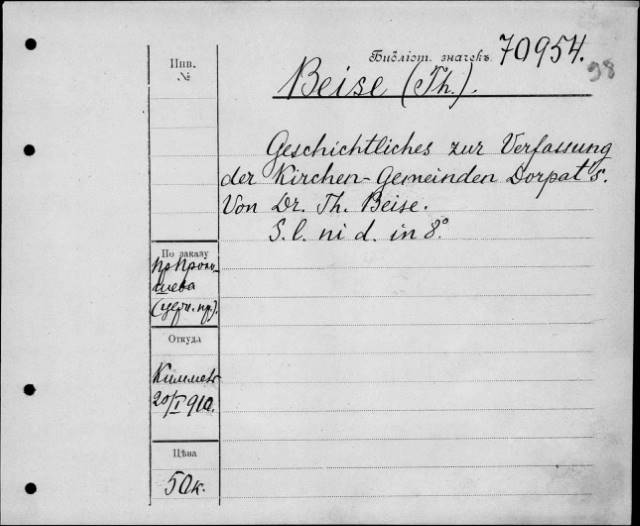 Библіот. значекъ 70954.
98
Инв.
№
Beise (Th.).
Geschichtliches zur Verfassung
der Kirchen-Gemeinden Dorpat's.
Von Dr. Th. Beise.
S. l. ni d. in 8°.
По заказу
(церк. пр).
Откуда
Киммеля
20/I 910.
Цѣна
50 к.